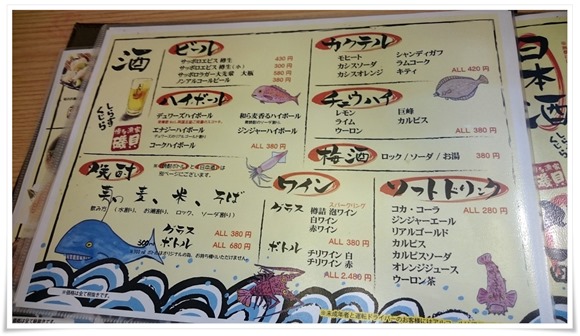 酒
ビール
サッポロヱビス 樽生 430 円
サッポロヱビス 樽生(小) 300 円
サッポロラガー大先輩 大瓶 580 円
ノンアルコールビール 380 円
しらす
くじら
磯貝
ハイボール
デュワーズハイボール
エナジーハイボール
コークハイボール
和ら麦香るハイボール
ジンジャーハイボール
ALL 380 円
焼酎
麦、米、そば
飲み方(水割り、お湯割り、ロック、ソーダ割り)
グラス ALL 380 円
ボトル ALL 680 円
カクテル
モヒート
カシスソーダ
カシスオレンジ
シャンディガフ
ラムコーク
キティ
ALL 420 円
チュウハイ
レモン
ライム
ウーロン
巨峰
カルピス
ALL 380 円
梅酒
ロック / ソーダ / お湯 380 円
ワイン
グラス
スパークリング
樽詰 泡ワイン
白ワイン
赤ワイン
ALL 380 円
ボトル
チリワイン 白
チリワイン 赤
ALL 2,480 円
ソフトドリンク
コカ・コーラ
ジンジャーエール
リアルゴールド
カルピス
カルピスソーダ
オレンジジュース
ウーロン茶
ALL 280 円
※価格は全て税抜きです。
日本酒